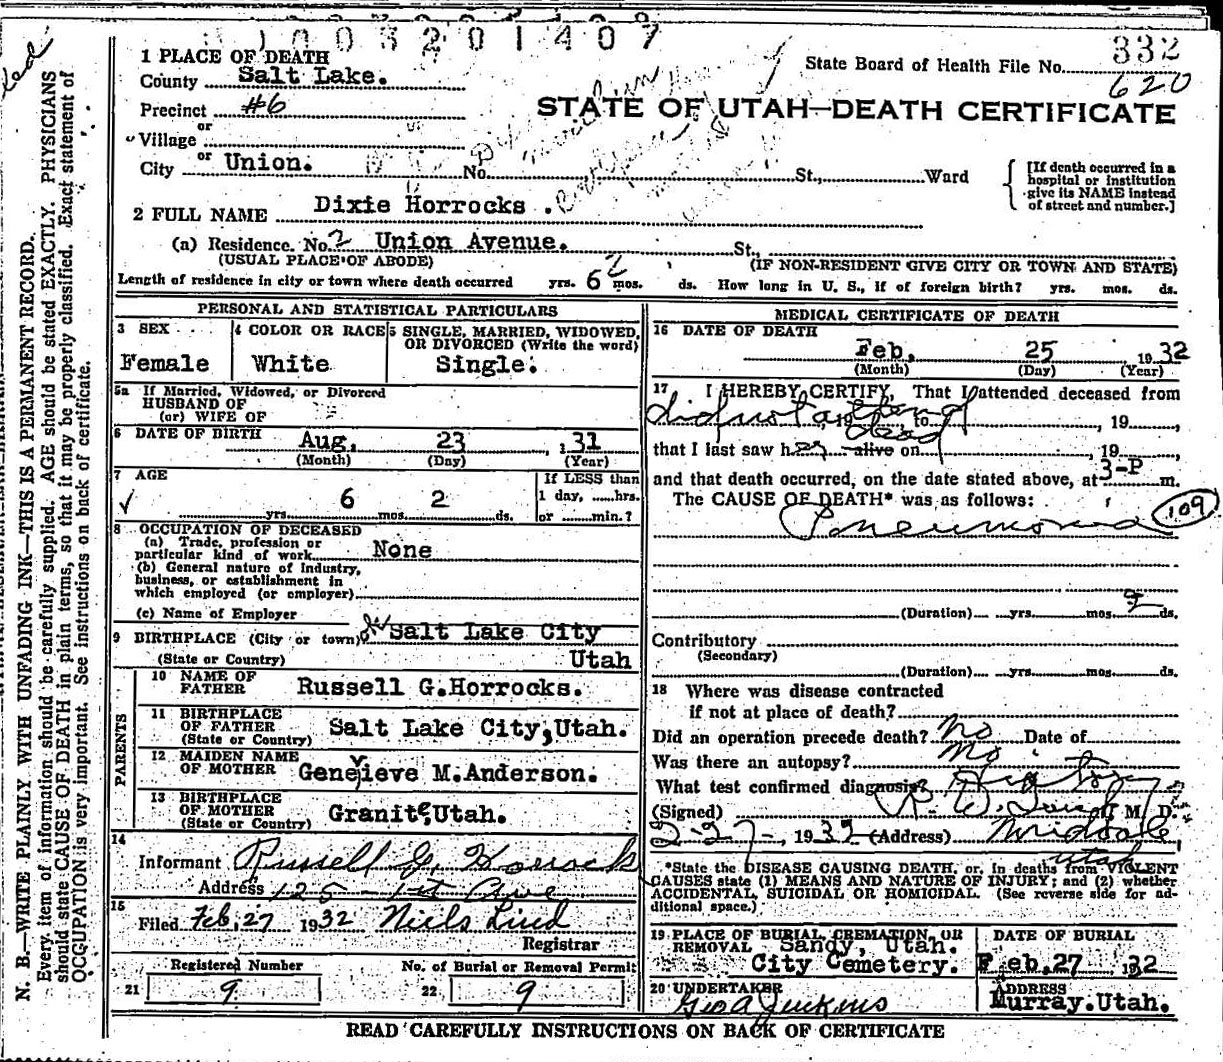 1003201407
1 PLACE OF DEATH
County Salt Lake.
State Board of Health File No. 332
620
Precinct #6
STATE OF UTAH—DEATH CERTIFICATE
or
Village
City or Union. No. St., Ward
[If death occurred in a
hospital or institution
give its NAME instead
of street and number.]
2 FULL NAME Dixie Horrocks .
(a) Residence. No. 2 Union Avenue. St.,
(USUAL PLACE OF ABODE) (IF NON-RESIDENT GIVE CITY OR TOWN AND STATE)
Length of residence in city or town where death occurred yrs. 6 mos. 2 ds. How long in U. S., if of foreign birth? yrs. mos. ds.
PERSONAL AND STATISTICAL PARTICULARS
3 SEX
Female
4 COLOR OR RACE
White
5 SINGLE, MARRIED, WIDOWED,
OR DIVORCED (Write the word)
Single.
5a If Married, Widowed, or Divorced
HUSBAND OF
(or) WIFE OF
6 DATE OF BIRTH Aug. 23 , 31
(Month) (Day) (Year)
7 AGE
6 2
yrs. mos. ds.
If LESS than
1 day, ......hrs.
or ........min.?
8 OCCUPATION OF DECEASED
(a) Trade, profession or
particular kind of work None
(b) General nature of Industry,
business, or establishment in
which employed (or employer)
(c) Name of Employer
9 BIRTHPLACE (City or town) Salt Lake City
(State or Country) Utah
PARENTS
10 NAME OF
FATHER Russell G.Horrocks.
11 BIRTHPLACE
OF FATHER Salt Lake City,Utah.
(State or Country)
12 MAIDEN NAME
OF MOTHER Genevieve M.Anderson.
13 BIRTHPLACE
OF MOTHER Granite,Utah.
(State or Country)
14
Informant Russell G. Horrocks
Address 125 - 1st Ave
15
Filed Feb. 27 1932 Niels Lind
Registrar
Registered Number
21 9
No. of Burial or Removal Permit
22 9
MEDICAL CERTIFICATE OF DEATH
16 DATE OF DEATH
Feb. 25 1932
(Month) (Day) (Year)
17 I HEREBY CERTIFY, That I attended deceased from
did not attend, 19 , to , 19 ,
dead
that I last saw her alive on , 19 ,
and that death occurred, on the date stated above, at 3-P m.
The CAUSE OF DEATH* was as follows:
Pneumonia 109
(Duration) yrs. mos. 2 ds.
Contributory
(Secondary)
(Duration) yrs. mos. ds.
18 Where was disease contracted
if not at place of death?
Did an operation precede death? No Date of
Was there an autopsy? No
What test confirmed diagnosis? History
(Signed) M. D.
2-27- 1932 (Address) Midvale
Utah
*State the DISEASE CAUSING DEATH, or, in deaths from VIOLENT
CAUSES state (1) MEANS AND NATURE OF INJURY; and (2) whether
ACCIDENTAL, SUICIDAL OR HOMICIDAL. (See reverse side for ad-
ditional space.)
19 PLACE OF BURIAL, CREMATION, OR
REMOVAL Sandy, Utah.
City Cemetery.
DATE OF BURIAL
Feb.27 1932
20 UNDERTAKER
Geo A Jenkins
ADDRESS
Murray.Utah.
READ CAREFULLY INSTRUCTIONS ON BACK OF CERTIFICATE
N. B.—WRITE PLAINLY WITH UNFADING INK—THIS IS A PERMANENT RECORD.
Every item of information should be carefully supplied. AGE should be stated EXACTLY. PHYSICIANS
should state CAUSE OF DEATH in plain terms, so that it may be properly classified. Exact statement of
OCCUPATION is very important. See instructions on back of certificate.